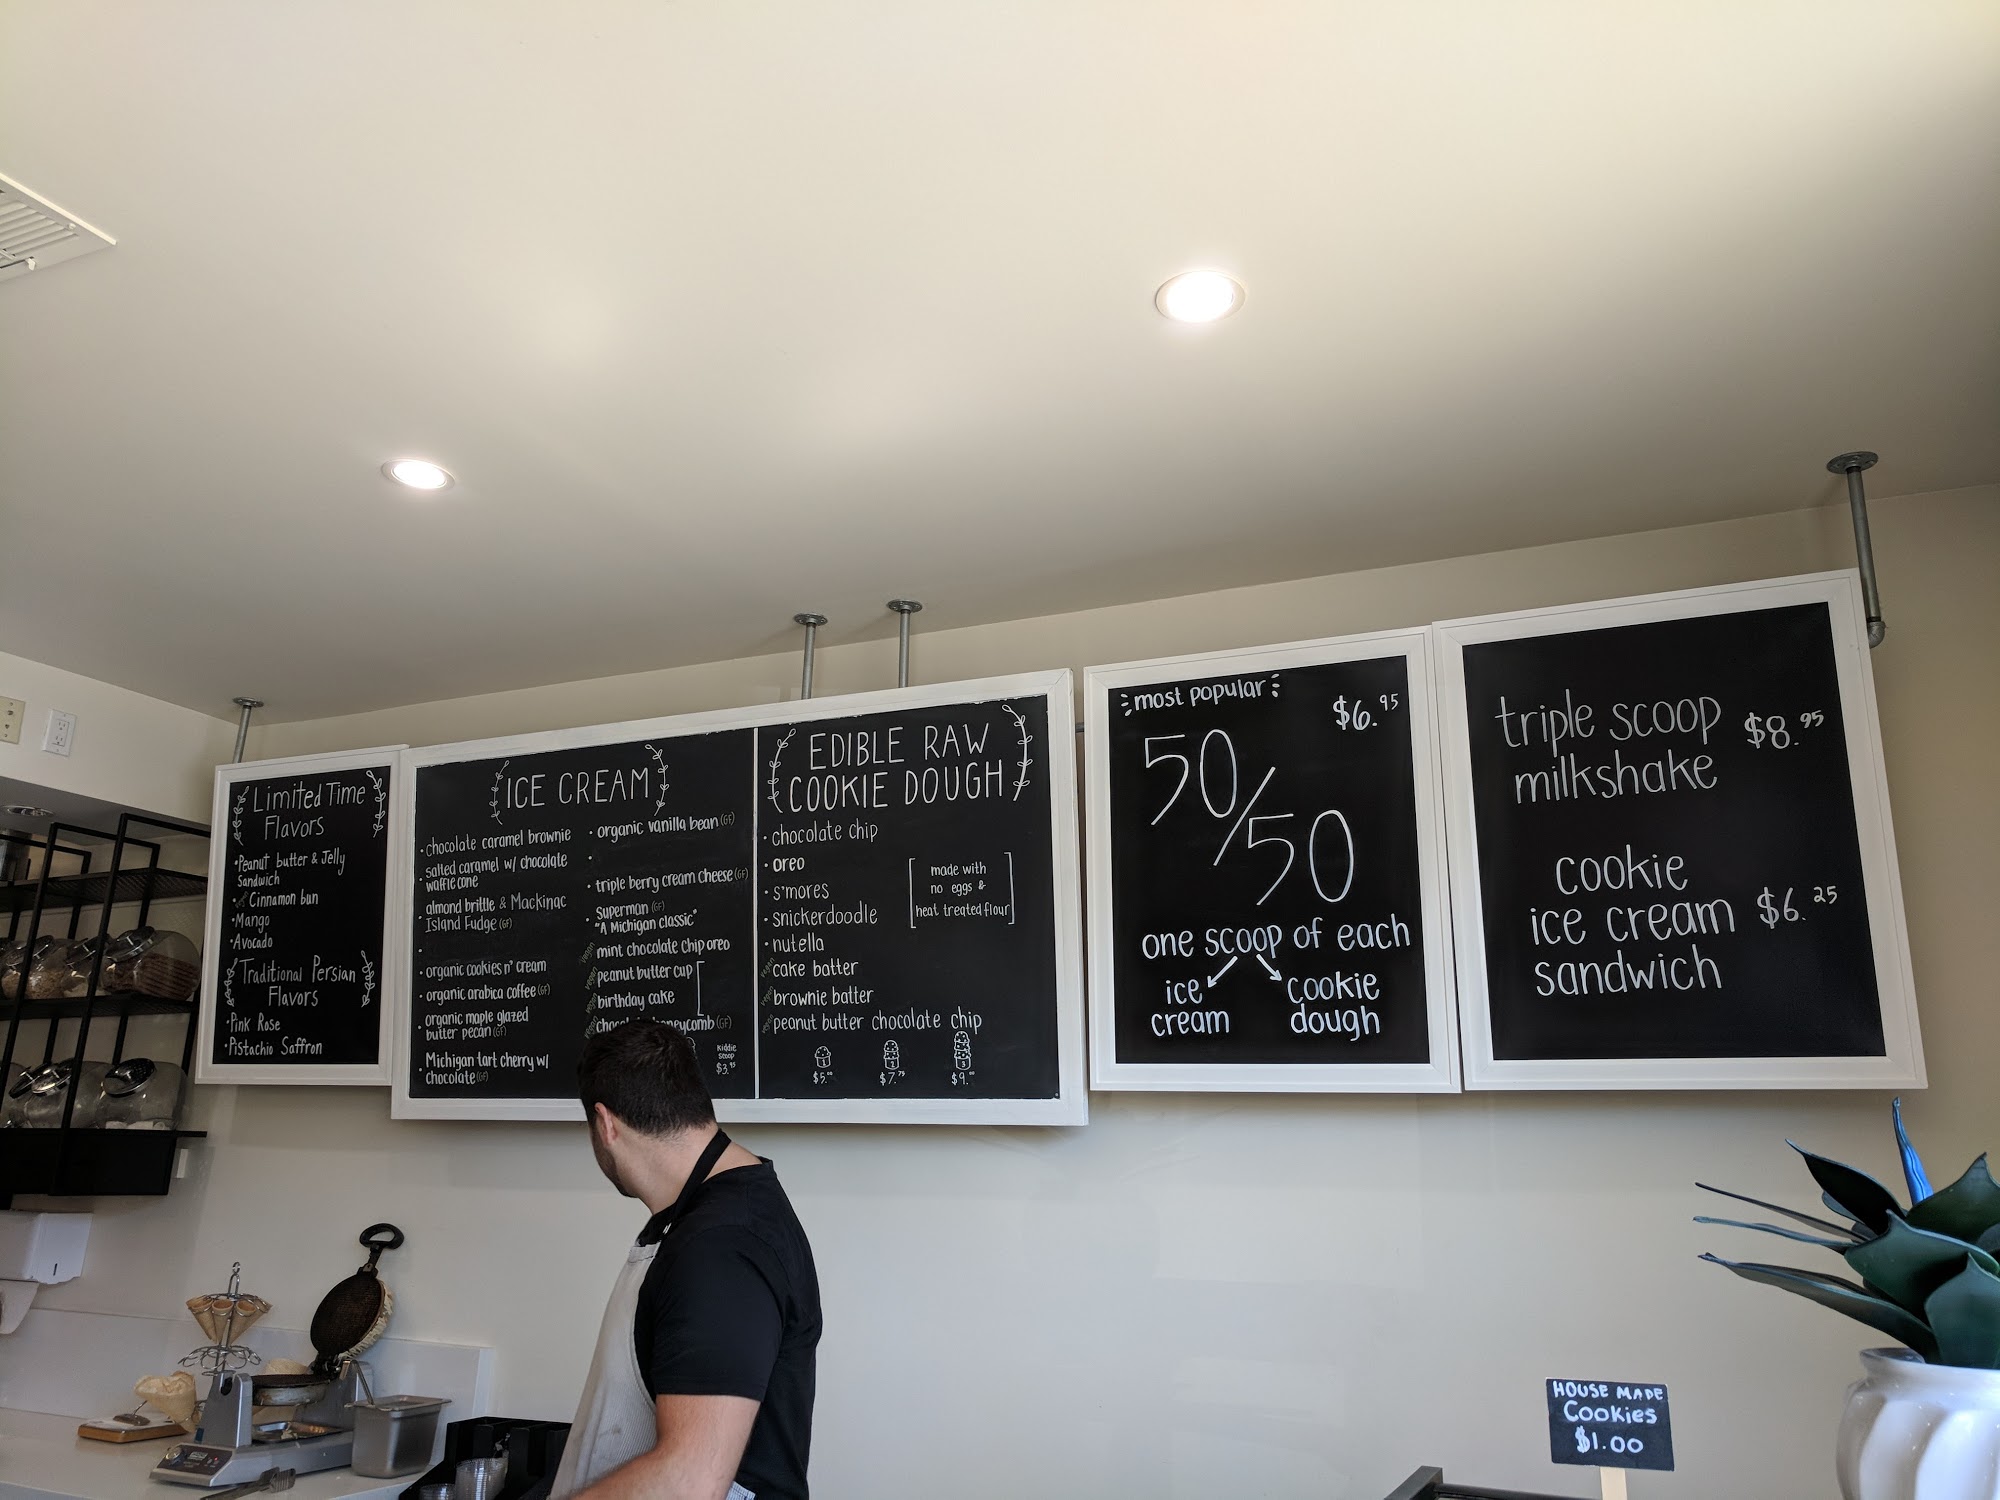 Limited Time
Flavors
•Peanut butter & Jelly
Sandwich
•Cinnamon bun
•Mango
•Avocado
Traditional Persian
Flavors
•Pink Rose
•Pistachio Saffron
ICE CREAM
• chocolate caramel brownie
• salted caramel w/ chocolate
waffle cone
almond brittle & Mackinac
• Island Fudge (GF)
•
• organic cookies n' cream
• organic arabica coffee (GF)
• organic maple glazed
butter pecan (GF)
• Michigan tart cherry w/
chocolate (GF)
• organic vanilla bean (GF)
•
• triple berry cream cheese (GF)
• Superman (GF)
"A Michigan classic"
vegan mint chocolate chip oreo
vegan peanut butter cup
vegan birthday cake
vegan (GF)
kiddie
scoop
$3.95
EDIBLE RAW
COOKIE DOUGH
• chocolate chip
• oreo
• s'mores
• snickerdoodle
• nutella
vegan cake batter
vegan brownie batter
vegan peanut butter chocolate chip
made with
no eggs &
heat treated flour
1 2 3
$5.00 $7.75 $9.00
most popular
$6.95
50/50
one scoop of each
ice
cream
cookie
dough
triple scoop
milkshake
$8.95
cookie
ice cream
sandwich
$6.25
HOUSE MADE
Cookies
$1.00